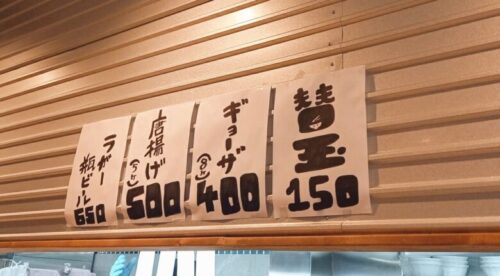 替玉
150
ギョーザ
(6ヶ)
400
唐揚げ
(5ヶ)
500
ラガー
瓶ビール
650